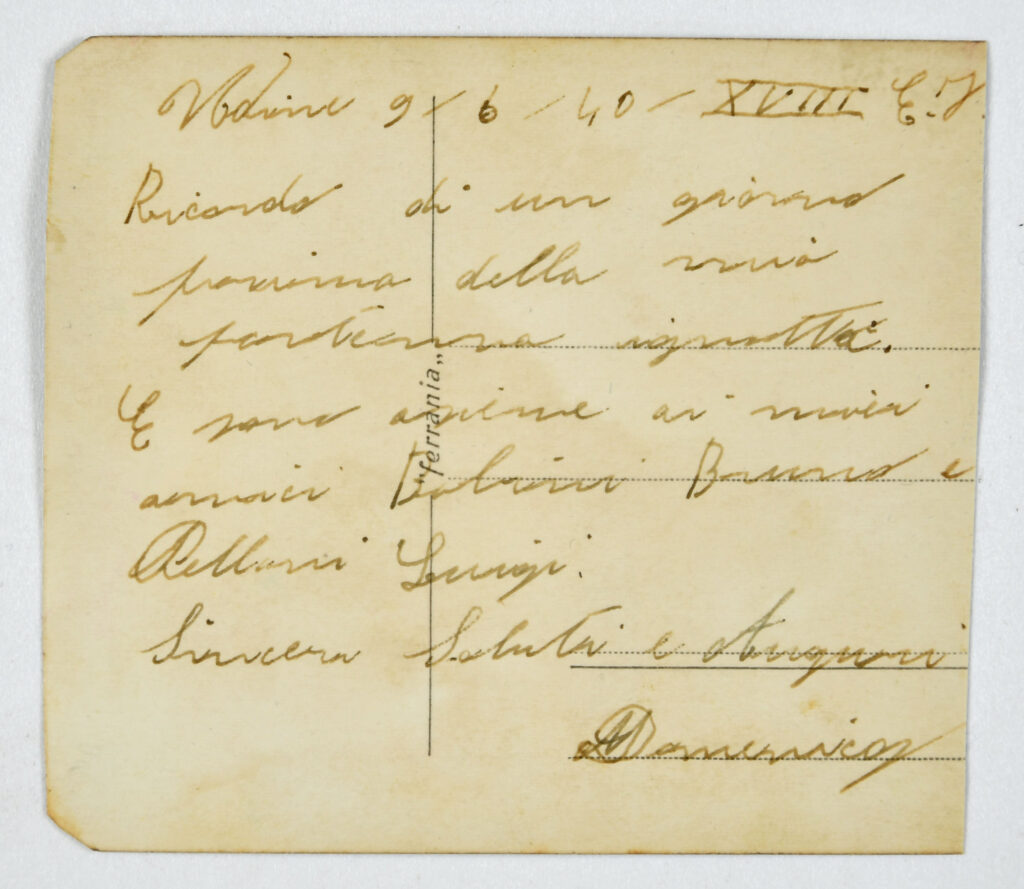 Udine 9/6/40 - XVIII E.F.
Ricordo di un giorno
prossima della mia
partenza ignotta.
E sono asieme ai miei
amici Bruno e
Luigi.
Sinceri Saluti e Auguri
Domenico
"ferrania"